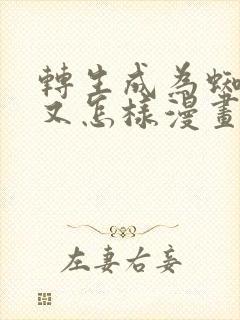 轉生成為蜘
又怎樣漫畫
左妻右妾